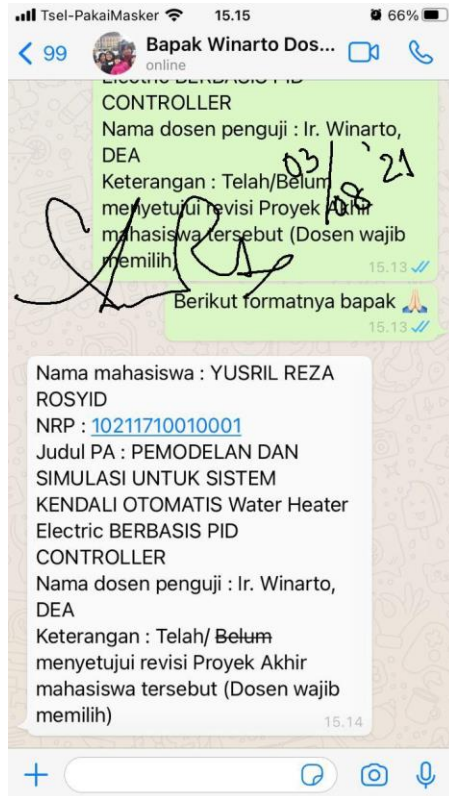 Tsel-PakaiMasker 15.15 66%
99 Bapak Winarto Dos...
online
Electric BERBASIS PID
CONTROLLER
Nama dosen penguji : Ir. Winarto,
DEA
03/08 '21
Keterangan : Telah/Belum
menyetujui revisi Proyek Akhir
mahasiswa tersebut (Dosen wajib
memilih)
15.13
Berikut formatnya bapak 🙏🏻
15.13
Nama mahasiswa : YUSRIL REZA
ROSYID
NRP : 10211710010001
Judul PA : PEMODELAN DAN
SIMULASI UNTUK SISTEM
KENDALI OTOMATIS Water Heater
Electric BERBASIS PID
CONTROLLER
Nama dosen penguji : Ir. Winarto,
DEA
Keterangan : Telah/ Belum
menyetujui revisi Proyek Akhir
mahasiswa tersebut (Dosen wajib
memilih)
15.14